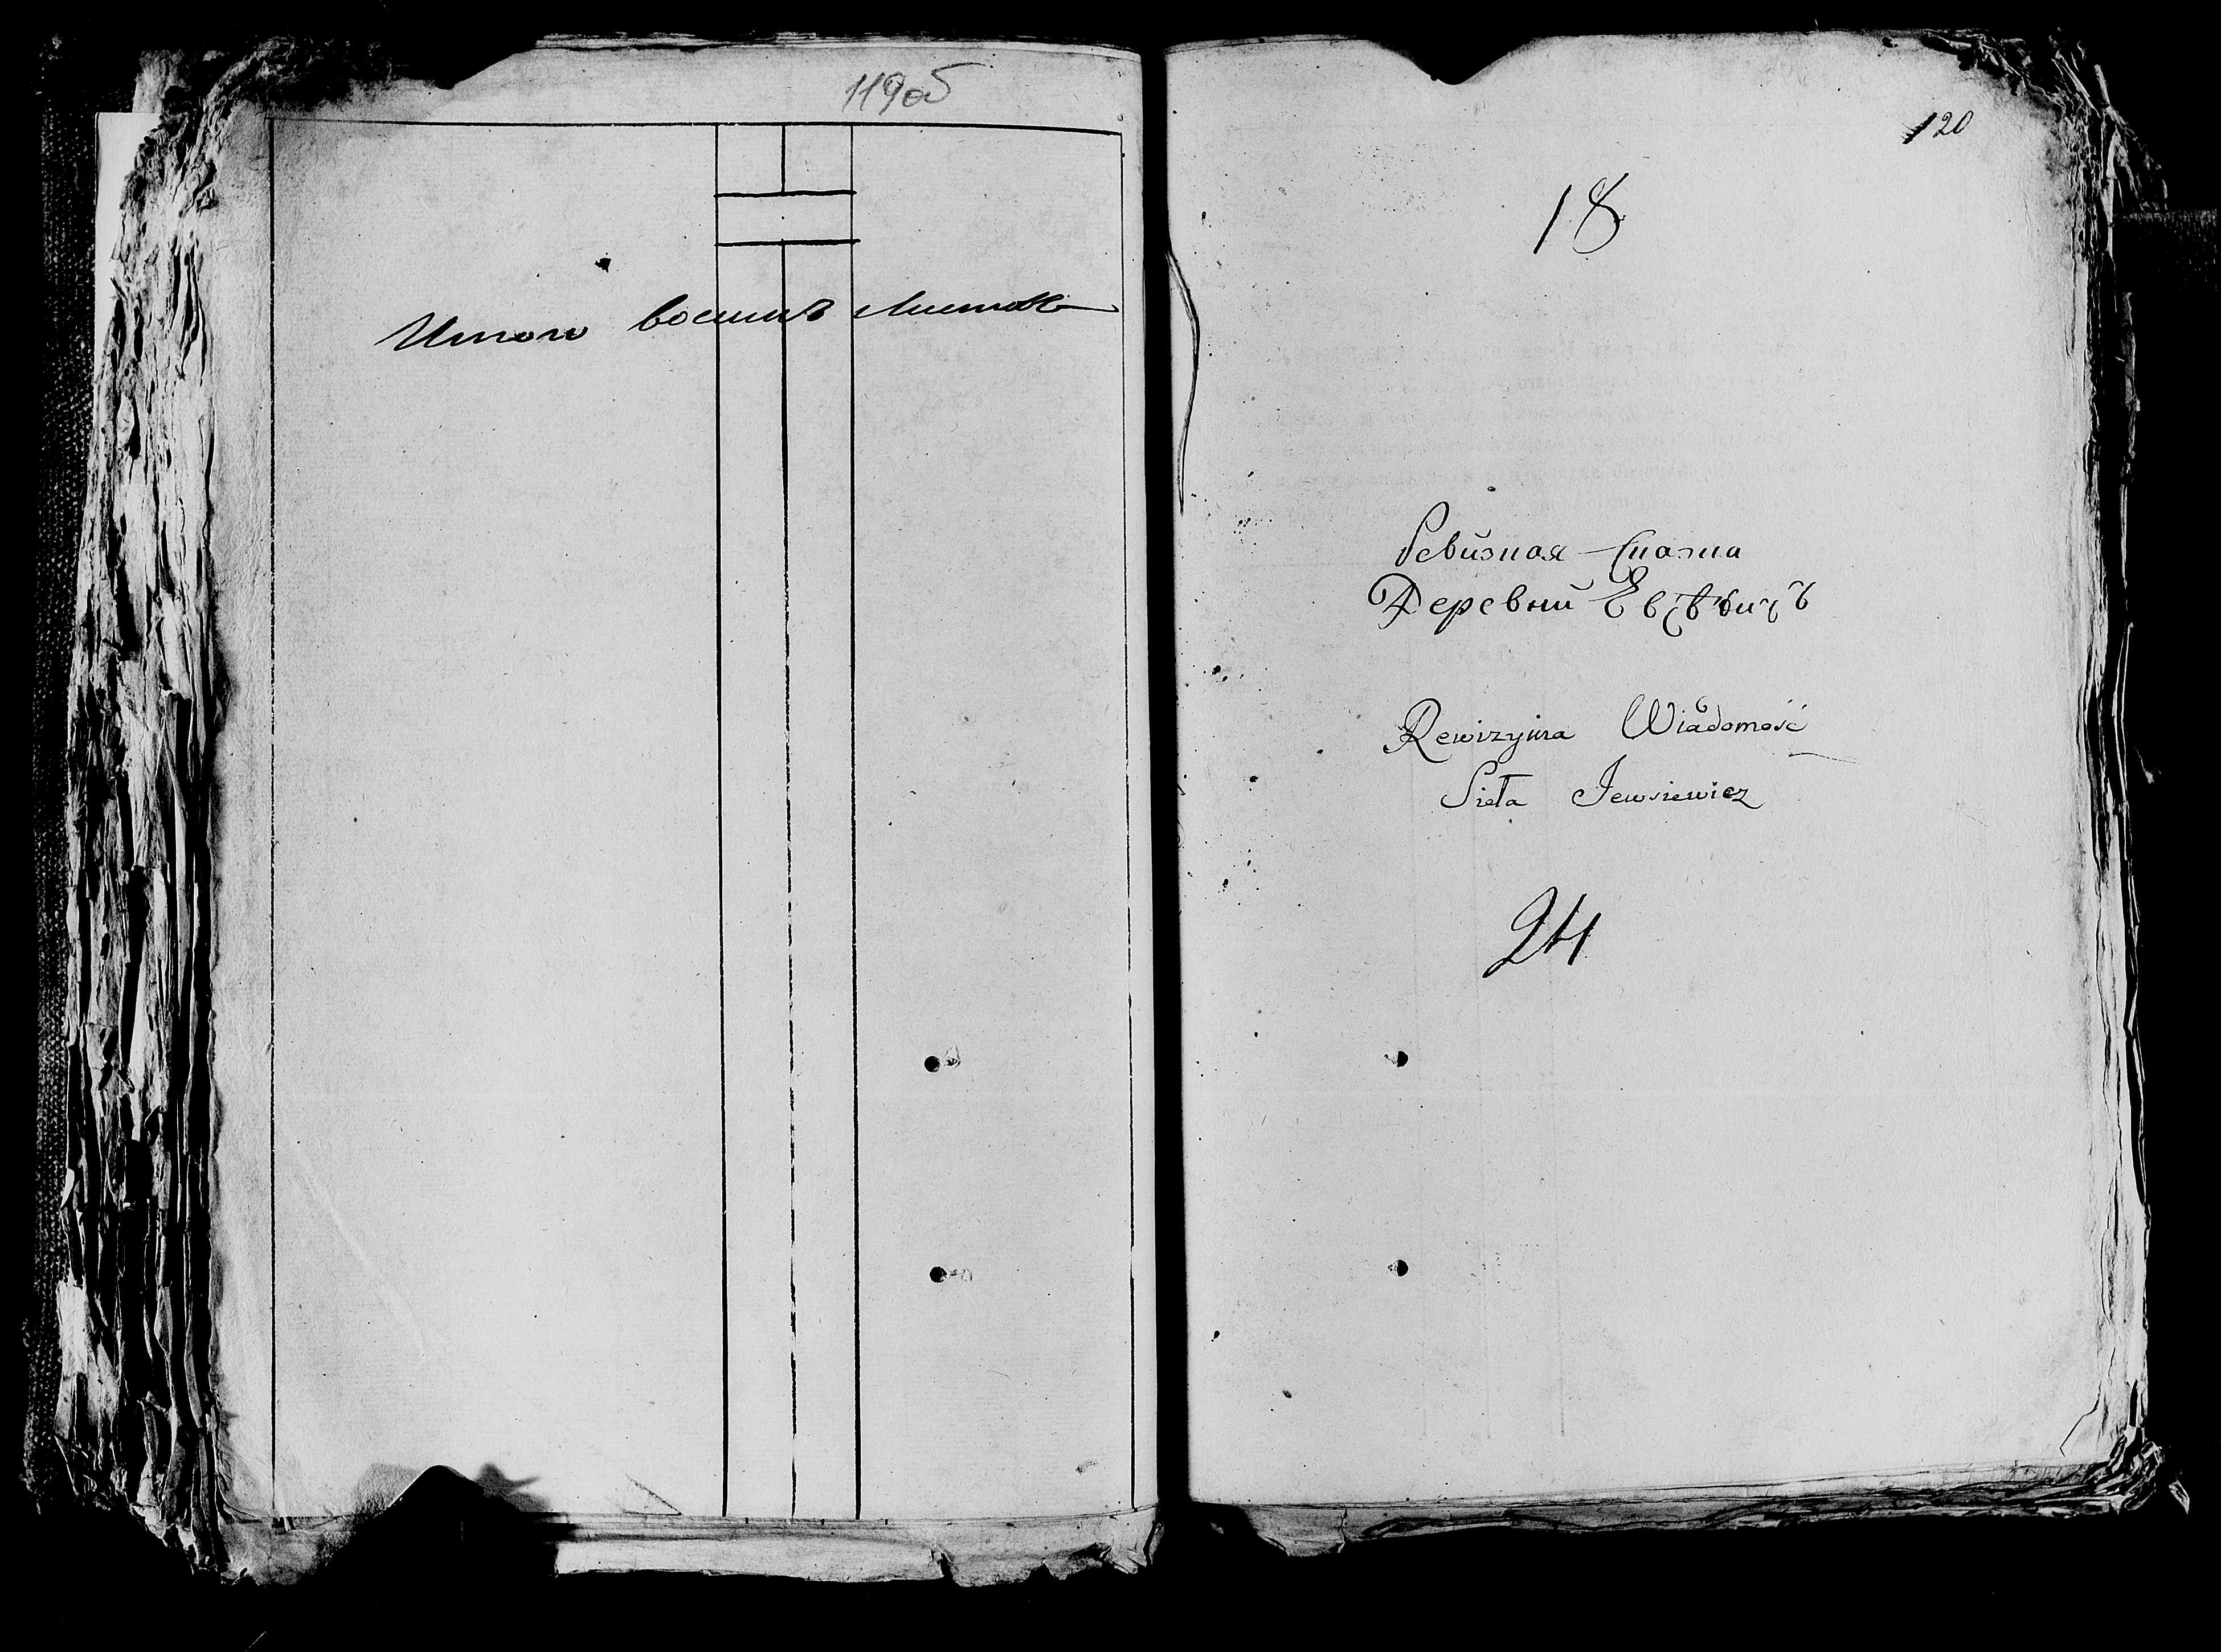 119об
Итого восемь листовъ
120
18
Ревизная Сказка
Деревни Евсѣвичъ
Rewizyina Wiadomość
Sieła Jewsiewicz
24